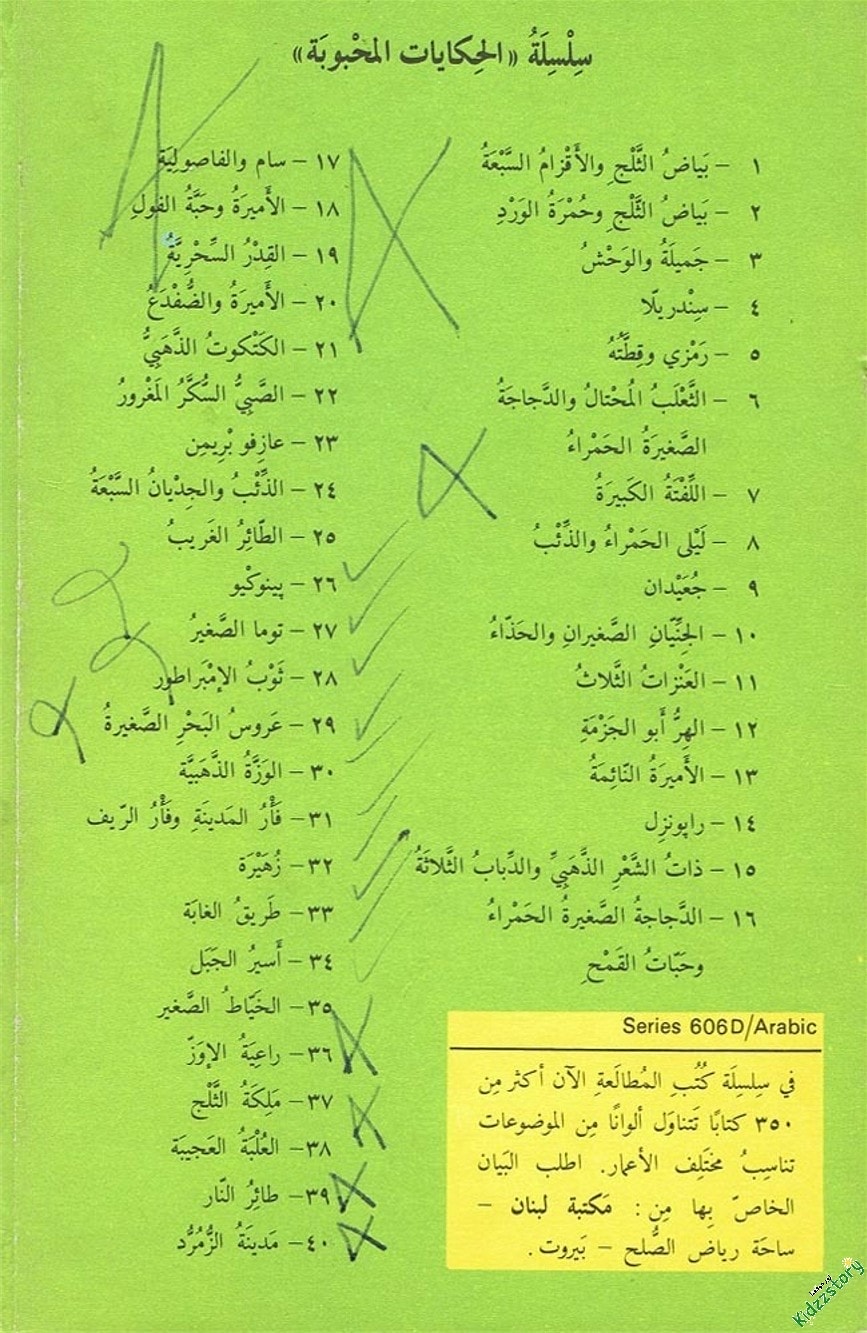 سِلْسِلَةُ «الحِكايات المَحْبوبَة»
١ – بَياضُ الثَّلْجِ والأَقْزامُ السَّبْعَةُ
٢ – بَياضُ الثَّلْجِ وحُمْرَةُ الوَرْدِ
٣ – جَميلَةُ والوَحْشُ
٤ – سِنْدريلّا
٥ – رَمْزي وقِطَّتُهُ
٦ – الثَّعْلَبُ المُحْتالُ والدَّجاجَةُ
الصَّغيرَةُ الحَمْراءُ
٧ – اللِّفْتَةُ الكَبيرَةُ
٨ – لَيْلى الحَمْراءُ والذِّئْبُ
٩ – جُعَيْدان
١٠ – الجِنِّيّانِ الصَّغيرانِ والحَذّاءُ
١١ – العَنْزاتُ الثَّلاثُ
١٢ – الهِرُّ أَبو الجَزْمَةِ
١٣ – الأَميرَةُ النّائِمَةُ
١٤ – راپونزِل
١٥ – ذاتُ الشَّعْرِ الذَّهَبِيِّ والدِّبابُ الثَّلاثَةُ
١٦ – الدَّجاجةُ الصَّغيرَةُ الحَمْراءُ
وحَبّاتُ القَمْحِ
١٧ – سام والفاصولِيَة
١٨ – الأَميرَةُ وحَبَّةُ الفولِ
١٩ – القِدْرُ السِّحْرِيَّةُ
٢٠ – الأَميرَةُ والضُّفْدَعُ
٢١ – الكَتْكوتُ الذَّهَبِيُّ
٢٢ – الصَّبِيُّ السُّكَّرُ المَغْرورُ
٢٣ – عازِفو بْريمِن
٢٤ – الذِّئْبُ والجِدْيانُ السَّبْعَةُ
٢٥ – الطّائِرُ الغَريبُ
٢٦ – پينوكْيو
٢٧ – توما الصَّغيرُ
٢٨ – ثَوْبُ الإمْبَراطور
٢٩ – عَروسُ البَحْرِ الصَّغيرةُ
٣٠ – الوَزَّةُ الذَّهَبيَّة
٣١ – فَأْرُ المَدينَةِ وفَأْرُ الرّيف
٣٢ – زُهَيْرَة
٣٣ – طَريقُ الغابَة
٣٤ – أَسيرُ الجَبَل
٣٥ – الخَيّاطُ الصَّغير
٣٦ – راعِيَةُ الإوَزّ
٣٧ – مَلِكَةُ الثَّلْج
٣٨ – العُلْبَةُ العَجيبَة
٣٩ – طائِرُ النّار
٤٠ – مَدينَةُ الزُّمُرُّد
Series 606D/Arabic
في سِلسِلَة كُتُب المُطالَعةِ الآن أكثر مِن
٣٥٠ كتابًا تَتناوَل ألوانًا مِن الموضوعات
تناسِبُ مختَلِف الأعمار. اطلب البَيان
الخاصّ بِها مِن: مَكتبة لبنان –
ساحَة رياض الصُّلح – بَيروت.
Kidzzstory